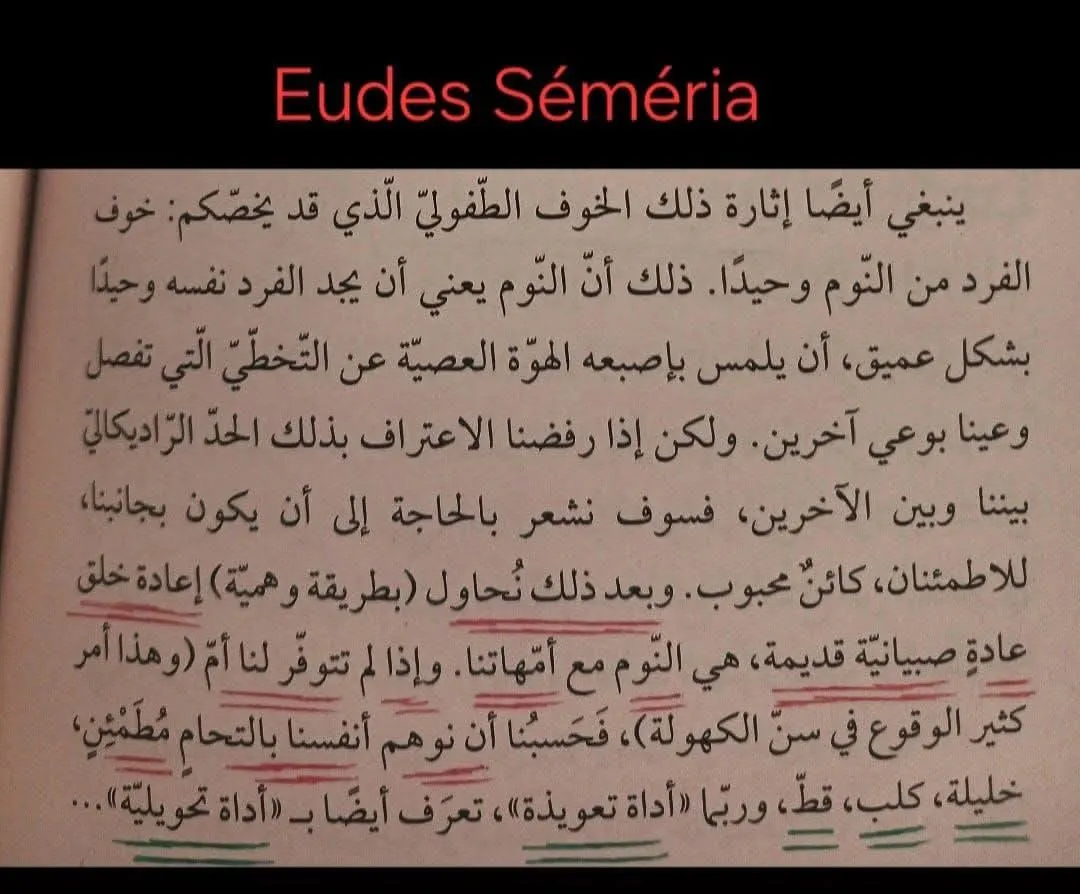 Eudes Séméria
ينبغي أيضًا إثارة ذلك الخوف الطّفوليّ الّذي قد يخصّكم: خوف
الفرد من النّوم وحيدًا. ذلك أنّ النّوم يعني أن يجد الفرد نفسه وحيدًا
بشكل عميق، أن يلمس بإصبعه الهوّة العصيّة عن التّخطّيّ الّتي تفصل
وعينا بوعي آخرين. ولكن إذا رفضنا الاعتراف بذلك الحدّ الرّاديكاليّ
بيننا وبين الآخرين، فسوف نشعر بالحاجة إلى أن يكون بجانبنا،
للاطمئنان، كائنٌ محبوب. وبعد ذلك نُحاول (بطريقة وهميّة) إعادة خلق
عادةٍ صبيانيّة قديمة، هي النّوم مع أمّهاتنا. وإذا لم تتوفّر لنا أمّ (وهذا أمر
كثير الوقوع في سنّ الكهولة)، فَحَسبُنا أن نوهم أنفسنا بالتحامٍ مُطَمْئِنٍ،
خليلة، كلب، قطّ، وربّما «أداة تعويذة»، تعرَف أيضًا بـ «أداة تحويليّة»...